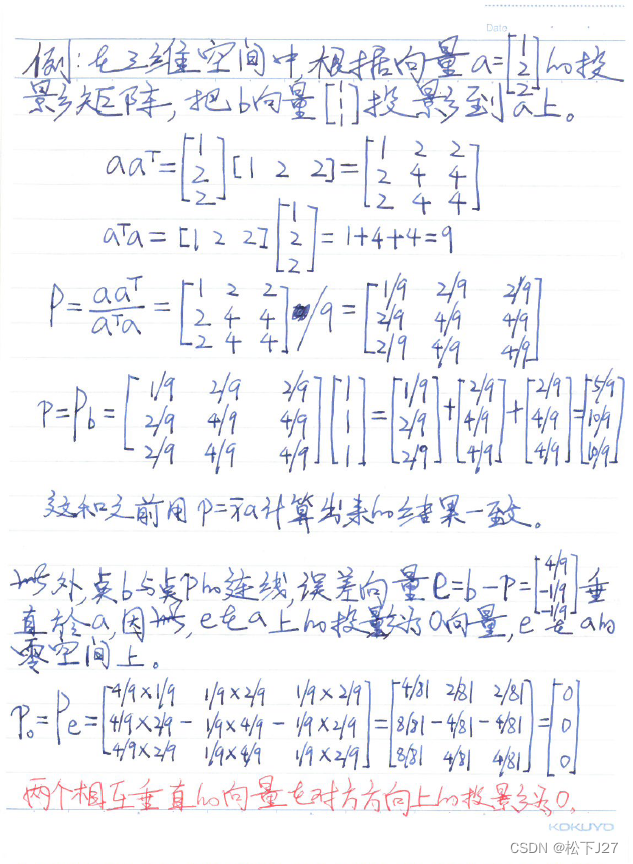 Date
例:在三维空间中根据向量a=[1 2 2]的投
影矩阵,把b向量[1 1 1]投影到a上。
aaᵀ=[1 2 2][1 2 2]=[1 2 2; 2 4 4; 2 4 4]
aᵀa=[1 2 2][1 2 2]=1+4+4=9
P=aaᵀ/aᵀa=[1 2 2; 2 4 4; 2 4 4]/9=[1/9 2/9 2/9; 2/9 4/9 4/9; 2/9 4/9 4/9]
p=Pb=[1/9 2/9 2/9; 2/9 4/9 4/9; 2/9 4/9 4/9][1 1 1]=[1/9 2/9 2/9]+[2/9 4/9 4/9]+[2/9 4/9 4/9]=[5/9 10/9 10/9]
这和之前用p=x̄a计算出来的结果一致。
此外,点b与点p的连线,误差向量e=b-p=[4/9 -1/9 -1/9]垂
直于a,因此,e在a上的投影为0向量,e在a的
零空间上。
P₀=Pe=[4/9×1/9 1/9×2/9 1/9×2/9; 4/9×2/9 - 1/9×4/9 - 1/9×2/9; 4/9×2/9 1/9×4/9 1/9×2/9]=[4/81 2/81 2/81; 8/81 - 4/81 - 4/81; 8/81 4/81 4/81]=[0 0 0]
两个相互垂直的向量在对方方向上的投影为0,
KOKUYO
CSDN @松下J27